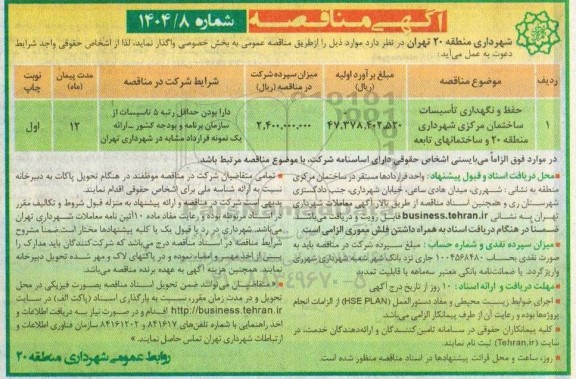 آگهی مناقصه
شماره ۱۴۰۴/۸
شهرداری منطقه ۲۰ تهران در نظر دارد موارد ذیل را ازطریق مناقصه عمومی به بخش خصوصی واگذار نماید، لذا از اشخاص حقوقی واجد شرایط
دعوت به عمل می‌آید:
ردیف
موضوع مناقصه
مبلغ برآورد اولیه (ریال)
میزان سپرده شرکت در مناقصه (ریال)
شرایط شرکت در مناقصه
مدت پیمان (ماه)
نوبت چاپ
۱
حفظ و نگهداری تأسیسات
ساختمان مرکزی شهرداری
منطقه ۲۰ و ساختمانهای تابعه
۴۷,۳۷۸,۴۰۲,۵۲۰
۲,۴۰۰,۰۰۰,۰۰۰
دارا بودن حداقل رتبه ۵ تاسیسات از
سازمان برنامه و بودجه کشور _ارائه
یک نمونه قرارداد مشابه در شهرداری تهران
۱۲
اول
در موارد فوق الزاماً می‌بایستی اشخاص حقوقی دارای اساسنامه شرکت، با موضوع مناقصه مرتبط باشد.
■ محل دریافت اسناد و قبول پیشنهاد: واحد قراردادها مستقر در ساختمان مرکزی
منطقه به نشانی: شهرری، میدان هادی ساعی، خیابان شهرداری، جنب دادگستری
شهرستان ری و همچنین اسناد مناقصه از طریق تالار آگهی معاملات شهرداری
تهران به نشانی business.tehran.ir قابل رویت و دریافت می‌باشد.
ضمناً در هنگام دریافت اسناد به همراه داشتن فلش مموری الزامی است.
■ میزان سپرده نقدی و شماره حساب: مبلغ سپرده شرکت در مناقصه باید به
صورت نقدی بحساب ۱۰۰۴۵۶۸۴۸۰ جاری نزد بانک شهر شعبه شهرداری شهرری
واریز گردد. یا ضمانت‌نامه بانکی معتبر سه‌ماهه با قابلیت تمدید
■ مهلت دریافت و ارائه اسناد: ۱۰ روز از تاریخ درج آگهی
■ اجرای ضوابط زیست محیطی و مفاد دستورالعمل (HSE PLAN) از الزامات انجام
پروژه‌ها بوده و رعایت آن از طرف پیمانکار الزامی می‌باشد.
■ کلیه پیمانکاران حقوقی در سامانه تامین‌کنندگان و ارائه‌دهندگان خدمت، در
سایت (Tehran.ir) ثبت نام نمایند.
■ روز، ساعت و محل قرائت پیشنهادها در اسناد مناقصه منظور شده است.
■ تمامی متقاضیان شرکت در مناقصه موظفند در هنگام تحویل پاکات به دبیرخانه
نسبت به ارائه شناسه ملی برای اشخاص حقوقی اقدام نمایند.
بدیهی است شرکت در مناقصه و ارائه پیشنهاد به منزله قبول شروط و تکالیف مقرر
در اسناد مربوطه بوده و رعایت مفاد ماده ۱۰ آئین نامه معاملات شهرداری تهران
می‌باشد. شهرداری در رد یا قبول یک یا کلیه پیشنهادها مختار است. ضمناً مشروح
شرایط مناقصه در اسناد مناقصه درج می‌باشد که شرکت‌کنندگان باید مدارک را
پس از اخذ مهر و امضاء نموده و در پاکتهای لاک و مهر شده تحویل دبیرخانه
نمایند. همچنین هزینه آگهی به عهده برنده مناقصه می‌باشد.
■ متقاضیان می‌توانند ضمن تحویل اسناد مناقصه بصورت فیزیکی در محل
تحویل و در مدت زمان مقرر، نسبت به بارگذاری اسناد (پاکت الف) در سایت
http://business.tehran.ir اقدام و در صورت نیاز به دریافت اطلاعات و
اخذ راهنمایی با شماره تلفن‌های ۸۴۱۶۱۷ و ۸۴۱۶۱۲۰۲ سازمان فناوری اطلاعات و
ارتباطات شهرداری تهران تماس حاصل نمایند.»
روابط عمومی شهرداری منطقه ۲۰